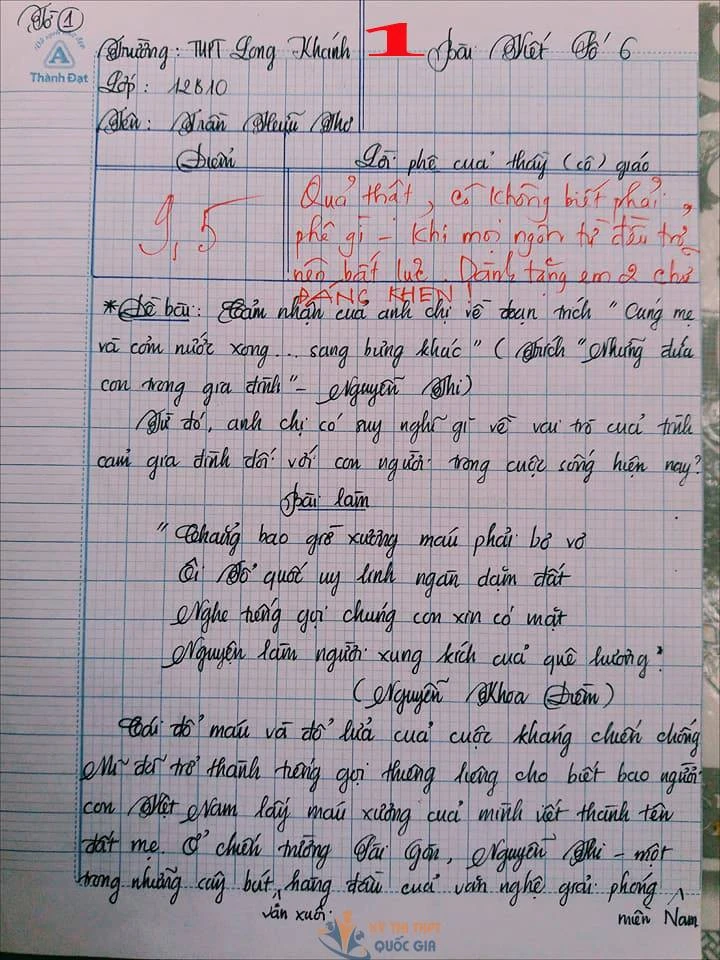 Tờ 1
Thành Đạt
Trường: THPT Long Khánh 1 Bài Viết Số 6
Lớp: 12B10
Tên: Trần Hữu Thơ
Điểm
Lời phê của thầy (cô) giáo
9,5
Quả thật, cô không biết phải
phê gì - khi mọi ngôn từ đều trở
nên bất lực. Dành tặng em 2 chữ
ĐÁNG KHEN!
*Đề bài: Cảm nhận của anh chị về đoạn trích "Cúng mẹ
và cơm nước xong... sang bưng khác" (Trích "Những đứa
con trong gia đình" - Nguyễn Thi)
Từ đó, anh chị có suy nghĩ gì về vai trò của tình
cảm gia đình đối với con người trong cuộc sống hiện nay?
Bài làm
"Chẳng bao giờ xương máu phải bơ vơ
Ôi Tổ quốc uy linh ngàn dặm đất
Nghe tiếng gọi chúng con xin có mặt
Nguyện làm người xung kích của quê hương"
(Nguyễn Khoa Điềm)
Cái đổ máu và đổ lửa của cuộc kháng chiến chống
Mĩ đã trở thành tiếng gọi thiêng liêng cho biết bao người
con Việt Nam lấy máu xương của mình viết thành tên
đất mẹ. Ở chiến trường Sài Gòn, Nguyễn Thi - một
trong những cây bút văn xuôi hàng đầu của văn nghệ giải phóng miền Nam
KỲ THI THPT
QUỐC GIA